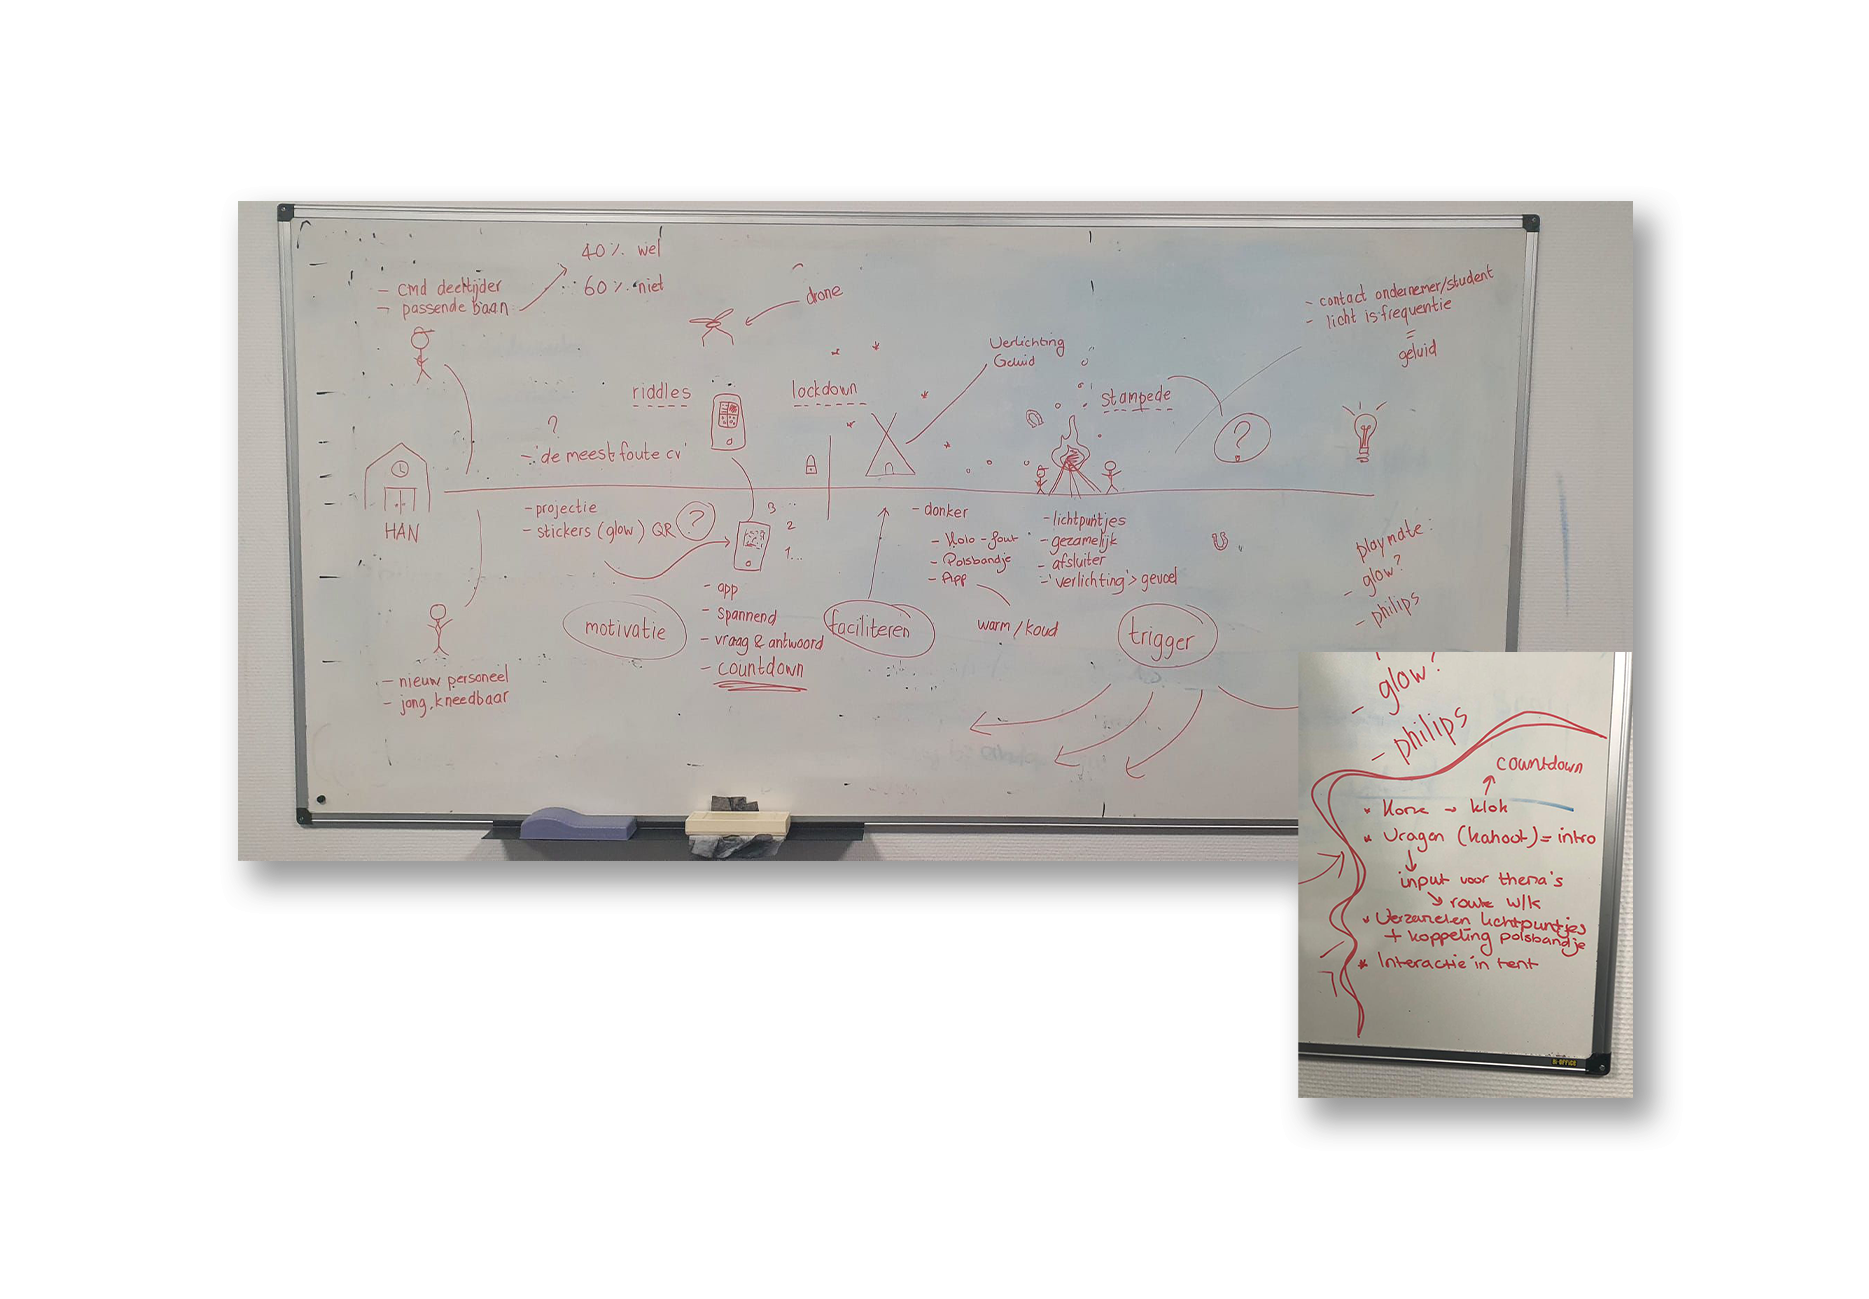 40% wel
60% niet
- cmd deeltijder
- passende baan
drone
- contact ondernemer/student
- licht is frequentie
=
geluid
Verlichting
Geluid
riddles
lockdown
stampede
?
?
- 'de meest foute cv'
HAN
- projectie
- stickers (glow) QR ?
3 ..
2
1...
- app
- spannend
- vraag & antwoord
- countdown
motivatie
faciliteren
- donker
- Holo-fout
- Polsbandje
- App
warm/koud
- lichtpuntjes
- gezamelijk
- afsluiter
- 'verlichting' > gevoel
trigger
playmate:
- glow?
- philips
- nieuw personeel
- jong, kneedbaar
- glow?
- philips
countdown
* Horze → klok
* Vragen (kahoot) = intro
input voor thema's
route w/k
* Verzamelen lichtpuntjes
+ koppeling polsbandje
* Interactie in tent
BI-OFFICE